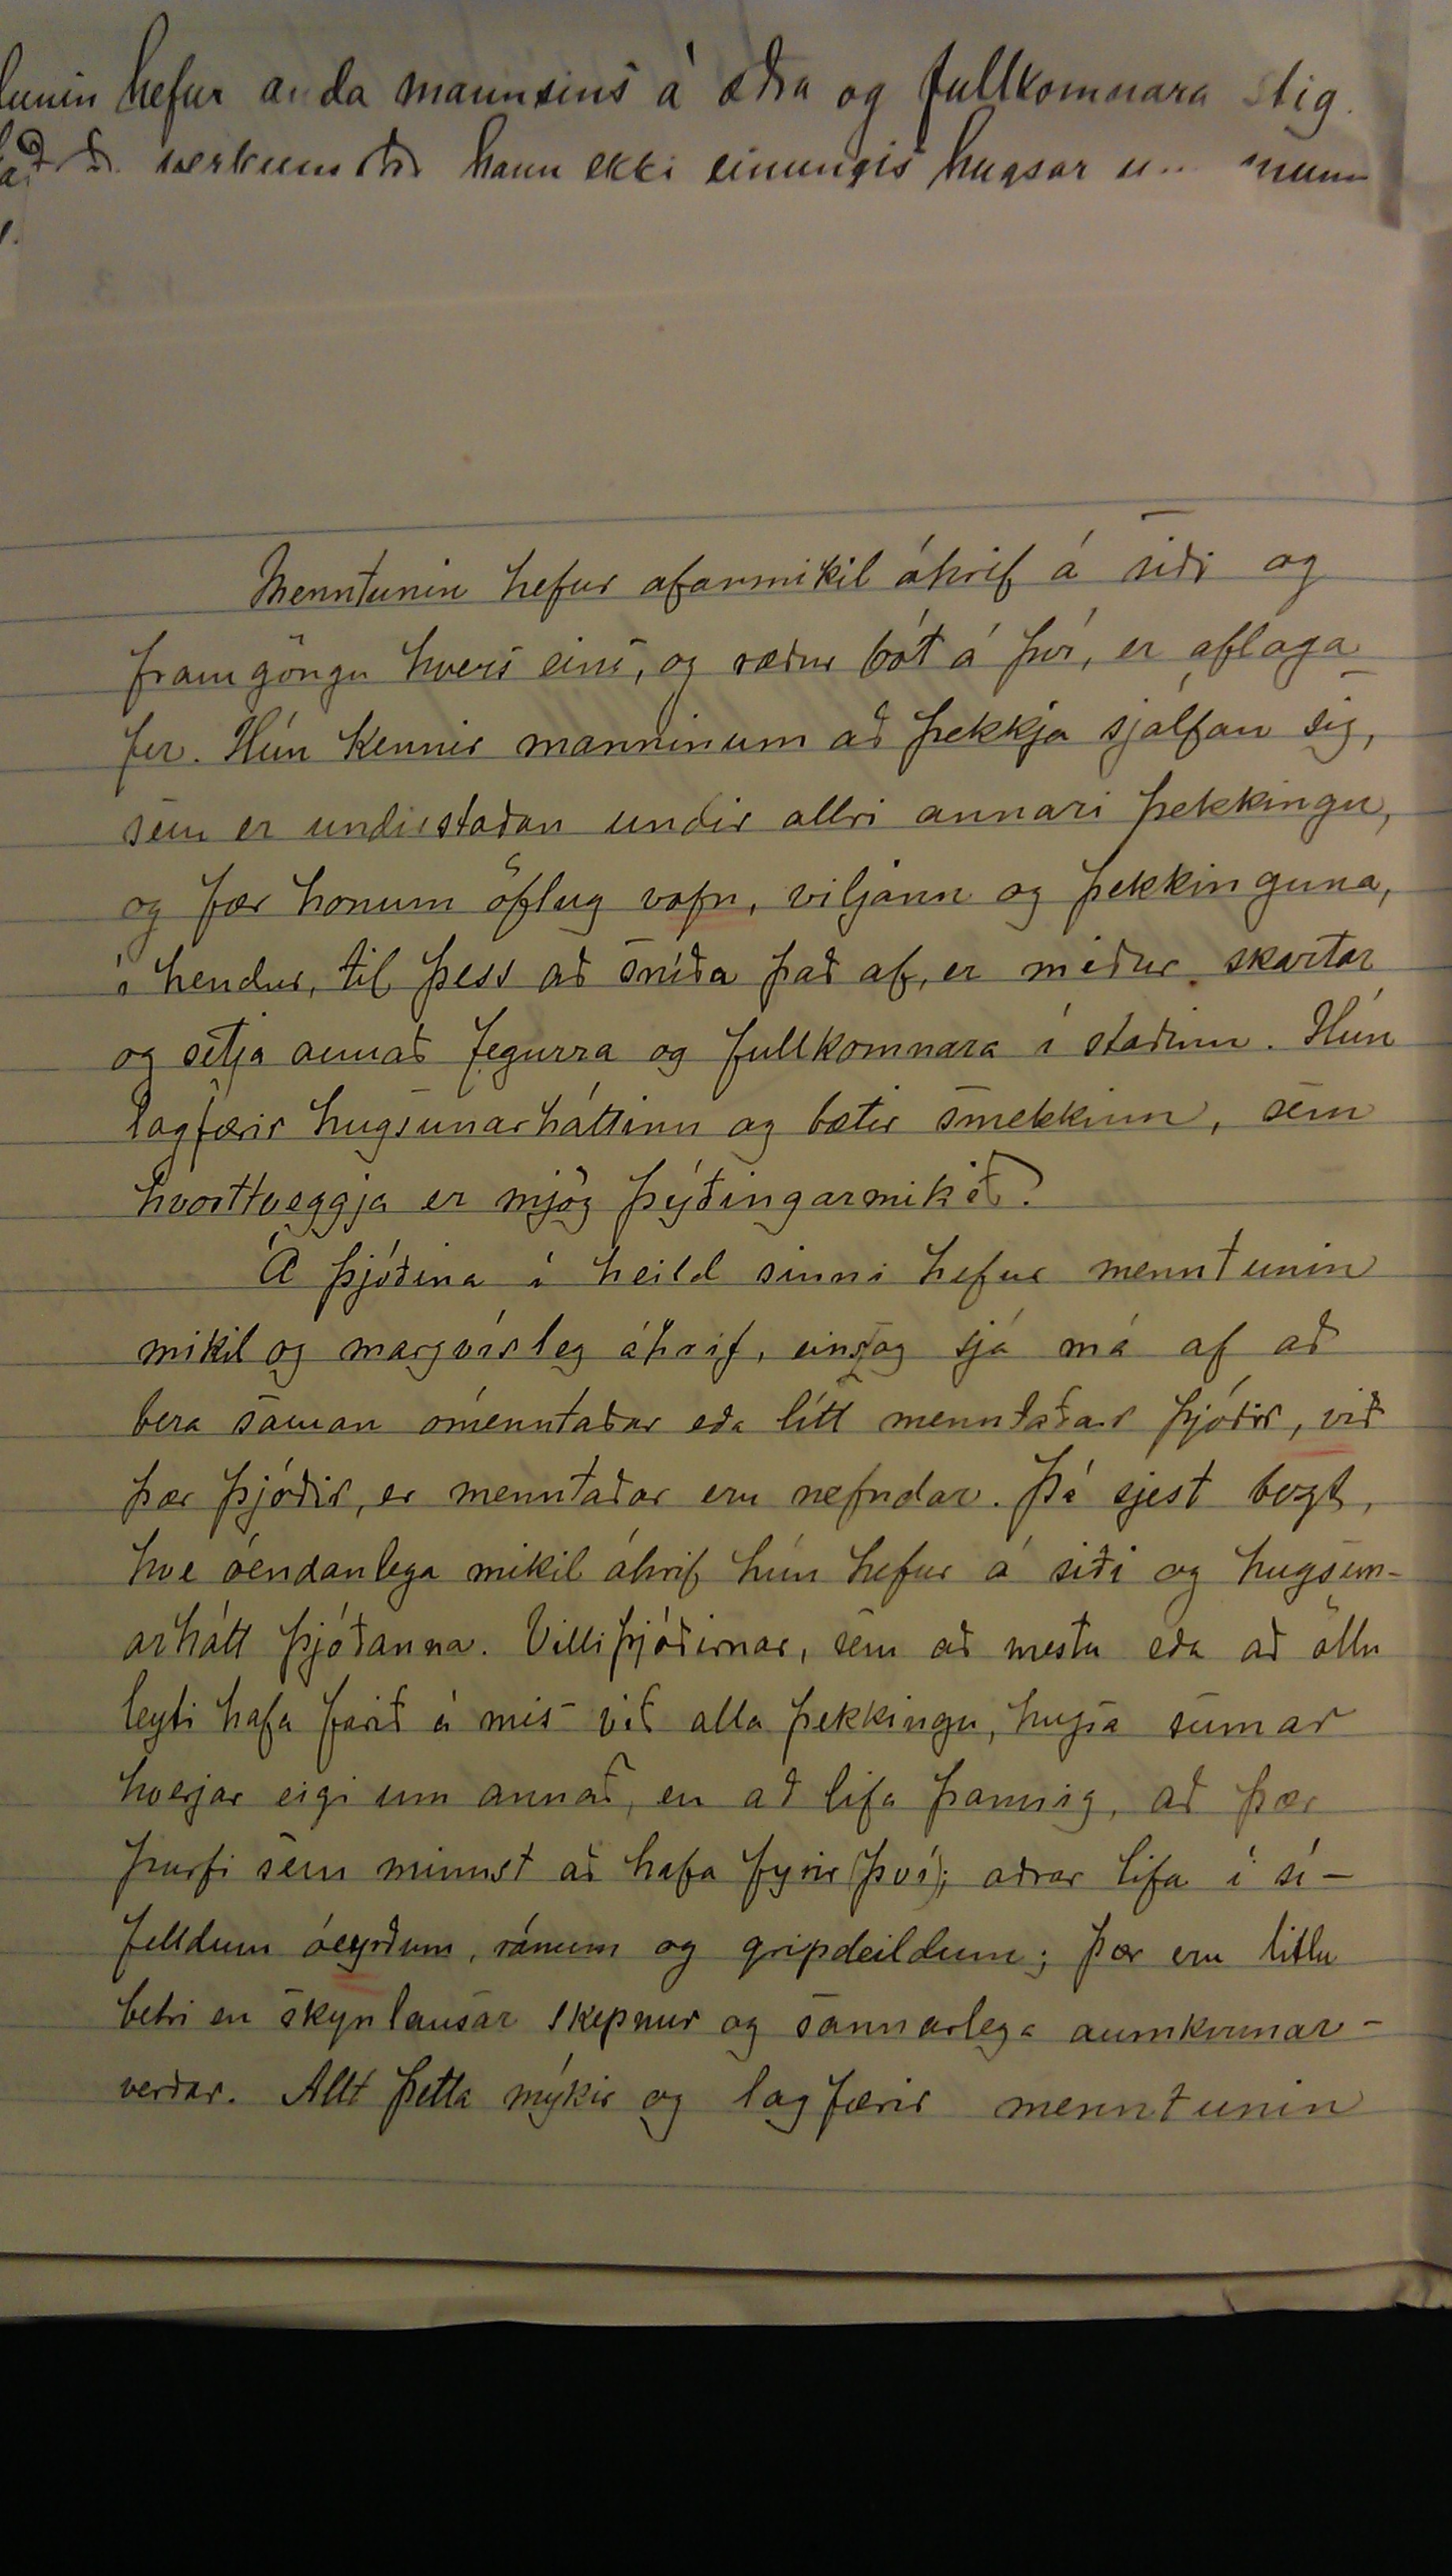 hefur anda mannsins á æðra og fullkomnara stig.
verkum hann ekki einungis hugsar
Menntunin hefur afarmikil áhrif á siði og
framgöngu hvers eins, og ræður bót á því, er aflaga
fer. Hún kennir manninum að þekkja sjálfan sig,
sem er undirstaðan undir allri annari þekkingu,
og fær honum öflug vofn, viljann og þekkinguna,
í hendur, til þess að sníða það af, er miður skartar
og setja annað fegurra og fullkomnara í staðinn. Hún
lagfærir hugsunarháttinn og bætir smekkinn, sem
hvorttveggja er mjög þýðingarmikið.
Á þjóðina í heild sinni hefur menntunin
mikil og margvísleg áhrif, einsog sjá má af að
bera saman ómenntaðar eða lítt menntaðar þjóðir, við
þær þjóðir, er menntaðar eru nefndar. Þá sjest bezt,
hve óendanlega mikil áhrif hún hefur á siði og hugsun-
arhátt þjóðanna. Villiþjóðirnar, sem að mestu eða að öllu
leyti hafa farið á mis við alla þekkingu, hugsa sumar
hverjar eigi um annað, en að lifa þannig, að þær
þurfi sem minnst að hafa fyrir því; aðrar lifa í sí-
felldum óeyrðum, ránum og gripdeildum; þær eru litlu
betri en skynlausar skepnur og sannarlega aumkvunar-
verðar. Allt þetta mýkir og lagfærir menntunin